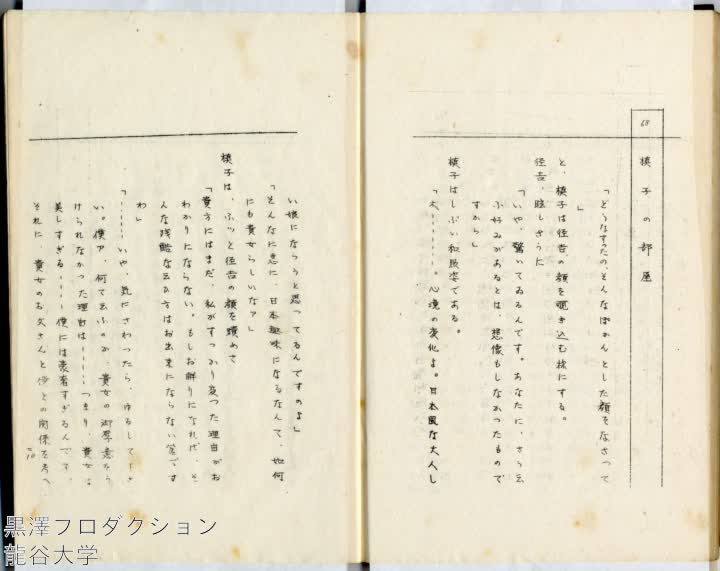 68
槙子の部屋
「どうなすったの、そんなぽかんとした顔をなさって
」
と、槙子は径吉の顔を覗き込む様にする。
径吉、眩しさうに
「いや、驚いてゐるんです。あなたに、さう云
ふ好みがあるとは、想像もしなかつたもので
すから」
槙子はしぶい和服姿である。
「ホ………。心境の変化よ。日本風な大人し
い娘にならうと思ってるんですのよ」
「そんなに急に、日本趣味になるなんて、如何
にも貴女らしいなァ」
槙子は、ふッと径吉の顔を瞶めて
「貴方にはまだ、私がすっかり変つた理由がお
わかりにならない。もしお解りになれば、そ
んな残酷な云ひ方はお出来にならない筈です
わ」
「………いや、気にさわつたら、ゆるして下さ
い。僕ァ、何て云ふのか、貴女の御厚意をう
けられなかつた理由は………つまり、貴女は
美しすぎる……僕には豪奢すぎるんです。
それに 貴女のお父さんと の関係を考へ
黒澤プロダクション
龍谷大学